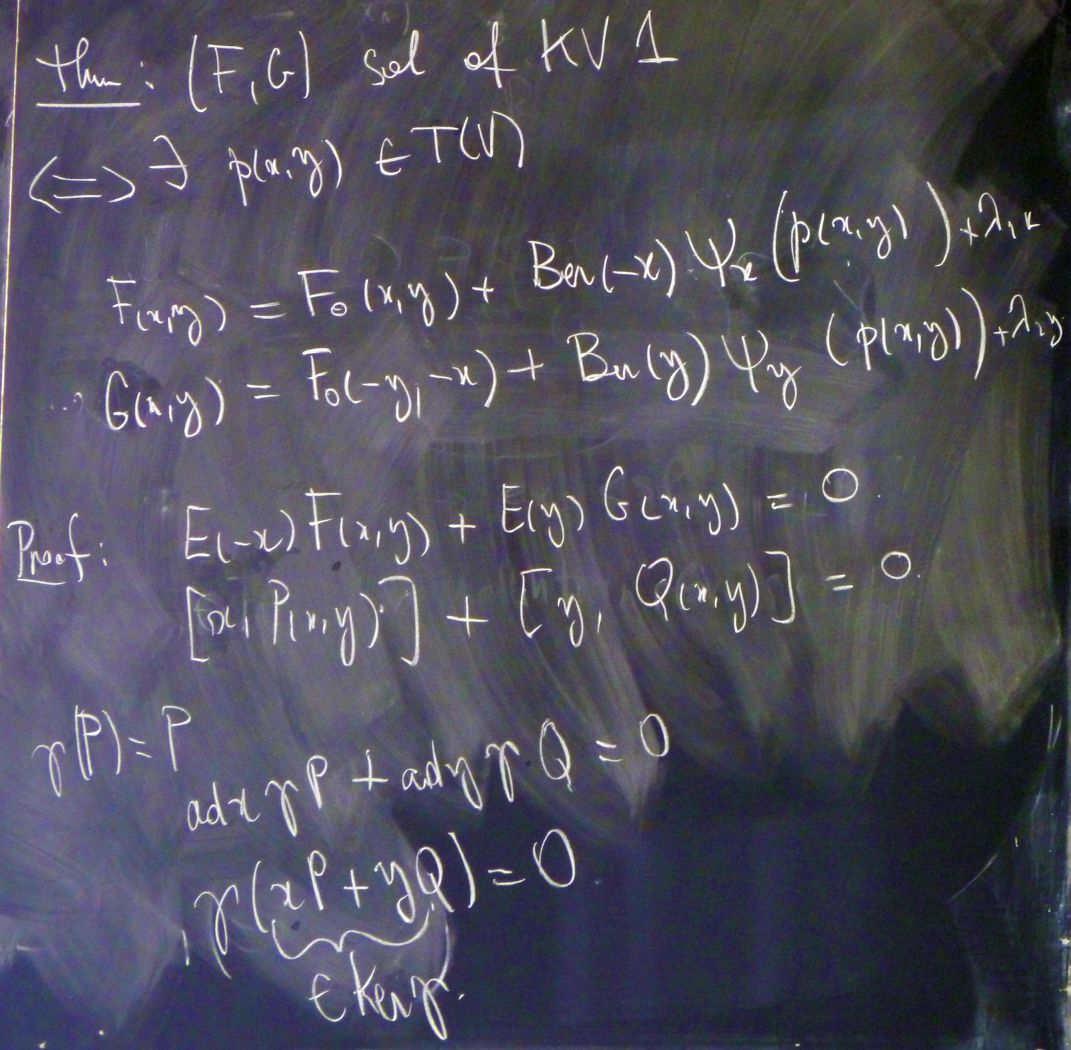 Thm: (F,G) sol of KV 1
⟺ ∃ p(x,y) ∈ T(V)
F(x,y) = F₀(x,y) + Ber(-x) Ψₓ (p(x,y)) + λ₁x
... G(x,y) = F₀(-y,-x) + Ber(y) Ψ_y (p(x,y)) + λ₂y
Proof: E(-x) F(x,y) + E(y) G(x,y) = 0.
[x, P(x,y)] + [y, Q(x,y)] = 0.
γ(P) = P
adx γP + ady γQ = 0
γ(xP + yQ) = 0
∈ Ker γ.